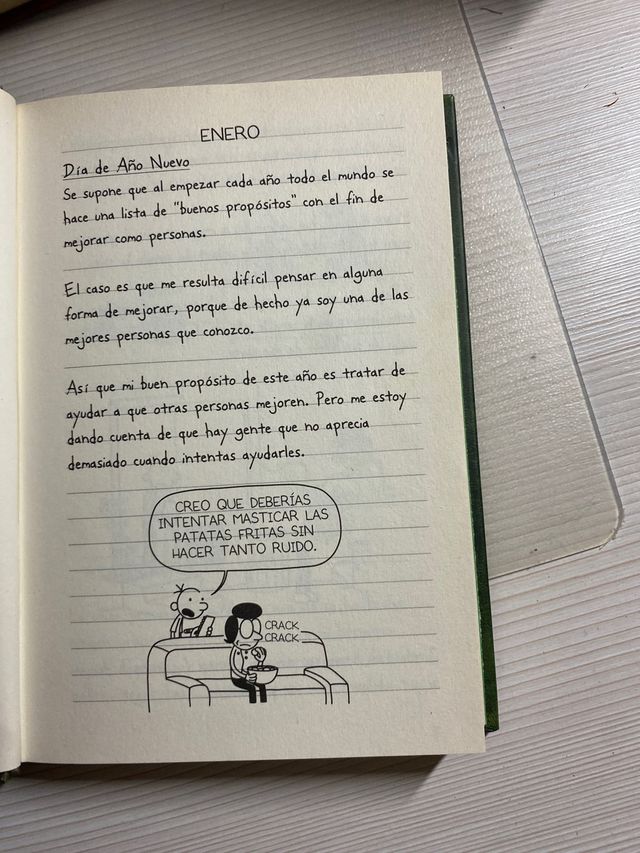 ENERO
Día de Año Nuevo
Se supone que al empezar cada año todo el mundo se
hace una lista de "buenos propósitos" con el fin de
mejorar como personas.
El caso es que me resulta difícil pensar en alguna
forma de mejorar, porque de hecho ya soy una de las
mejores personas que conozco.
Así que mi buen propósito de este año es tratar de
ayudar a que otras personas mejoren. Pero me estoy
dando cuenta de que hay gente que no aprecia
demasiado cuando intentas ayudarles.
CREO QUE DEBERÍAS
INTENTAR MASTICAR LAS
PATATAS FRITAS SIN
HACER TANTO RUIDO.
CRACK
CRACK